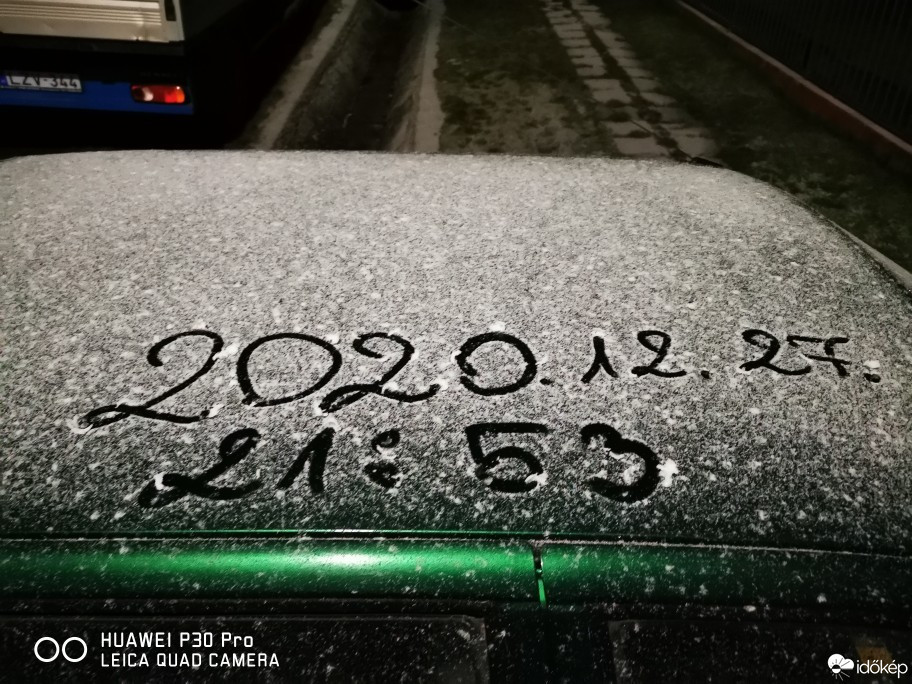 LZV-344
2020.12.27.
21:53
HUAWEI P30 Pro
LEICA QUAD CAMERA
időkép